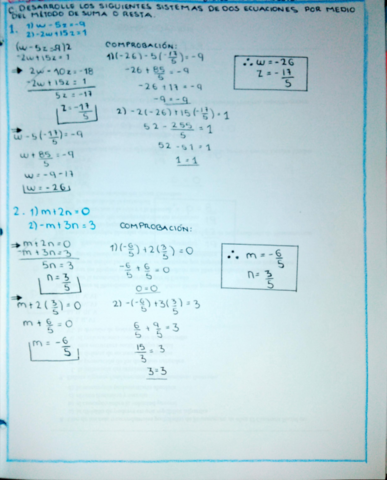 C. DESARROLLE LOS SIGUIENTES SISTEMAS DE DOS ECUACIONES, POR MEDIO
DEL MÉTODO DE SUMA O RESTA.
1. 1) w-5z=-9
2) -2w+15z=1
(w-5z=9)2
-2w+15z=1
2w-10z=-18
-2w+15z=1
5z=-17
z=-17/5
w-5(-17/5)=-9
w+85/5=-9
w=-9-17
w=-26
COMPROBACIÓN:
1)(-26)-5(-17/5)=-9
-26+85/5=-9
-26+17=-9
-9=-9
2)-2(-26)+15(-17/5)=1
52-255/5=1
52-51=1
1=1
∴ w=-26
z=-17/5
2. 1) m+2n=0
2) -m+3n=3
m+2n=0
-m+3n=3
5n=3
n=3/5
m+2(3/5)=0
m+6/5=0
m=-6/5
COMPROBACIÓN:
1)(-6/5)+2(3/5)=0
-6/5+6/5=0
0=0
2)-(-6/5)+3(3/5)=3
6/5+9/5=3
15/5=3
3=3
∴ m=-6/5
n=3/5